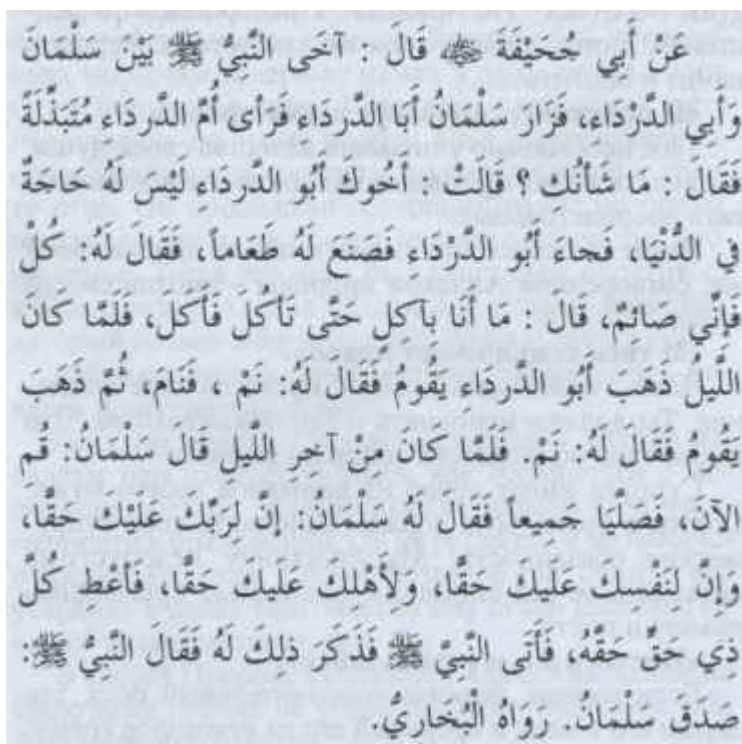 عَنْ أَبِي جُحَيْفَةَ ﵁ قَالَ : آخَى النَّبِيُّ ﷺ بَيْنَ سَلْمَانَ
وَأَبِي الدَّرْدَاء، فَزَارَ سَلْمَانُ أَبَا الدَّرداء فَرَأى أُمَّ الدَّرداء مُتَبَذِّلَةً
فَقَالَ : مَا شَأْنُك ؟ قالَتْ : أَخُوكَ أَبُو الدَّرداء ليْس لَهُ حَاجَةٌ
فِي الدُّنْيَا، فَجاءَ أَبُو الدَّرْدَاء فَصَنَعَ لَهُ طَعَاماً، فَقَالَ لَهُ: كُلْ
فَإِنِّي صَائِمٌ، قَالَ : مَا أَنَا بآكلٍ حَتَّى تَأْكل فَأَكل، فَلمَّا كانَ
اللَّيلُ ذَهَبَ أَبُو الدَّرداءِ يَقُومُ فَقَالَ لَهُ: نَمْ ، فَنَامَ، ثُمَّ ذَهَبَ
يَقُومُ فَقَالَ لَهُ: نَمْ. فَلَمَّا كانَ مِنْ آخر اللَّيلِ قال سَلْمَانُ: قُم
الآنَ، فَصَلَّيَا جَمِيعاً فَقَالَ لَهُ سَلْمَانُ: إنَّ لِرَبِّكَ عَلَيْكَ حَقًّا،
وَإِنَّ لِنَفْسِك عَلَيك حَقًّا، وَلِأَهْلكَ عَلَيكَ حَقًّا، فَأَعْطِ كُلَّ
ذِي حَقٍّ حَقَّهُ، فَأَتَى النَّبِيَّ ﷺ فَذَكَرَ ذلِكَ لَهُ فَقَالَ النَّبِيُّ ﷺ:
صَدَقَ سَلْمَانُ. رَوَاهُ الْبُخَارِيُّ.